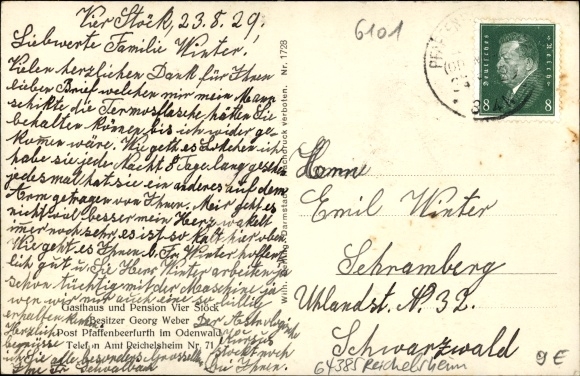 Vier Stöck, 23.8.29.
Liebwerte Familie Winter!
Vielen herzlichen Dank für Ihnen
lieben Brief welchen mir mein Mann
schikte die Termosflasche hätten Sie
behalten können bis ich wider ge-
komen wäre. Wie geht es ich
habe sie jede Nacht 8 Tage lang gesehen
jedesmal hat sie ein anderes auf dem
Arm getragen von Ihnen. Mir geht es
nicht viel besser mein Herz wakelt
imer noch sehr, es ist so kalt hier oben
Wie geht es Ihnen b. Fr. Winter hoffent
lich gut u. Sie Herr Winter arbeiten ja
schon tüchtig mit der Maschine ja
wen wir nur auch eine so billig
erhalten
Herzlich
begrüsse
ich Sie alle besonders
Ihre Fr. Schwalbach
Der
noch
bei Ihnen.
Gasthaus und Pension Vier Stöck
Besitzer Georg Weber
Post Pfaffenbeerfurth im Odenwald
Telef. n Amt Reichelsheim Nr. 71
Nachdruck verboten. Nr. 1728
Darmstadt
6101
Deutsches Reich
8 8
Herrn
Emil Winter
Schramberg
Uhlandst. N. 32.
Schwarzwald
64385 Reichelsheim
9 €